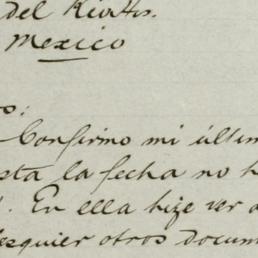 del
Mexico
o:
Confirmo mi últim
sta la fecha no h
En ella hize ver a
esquier otros docum